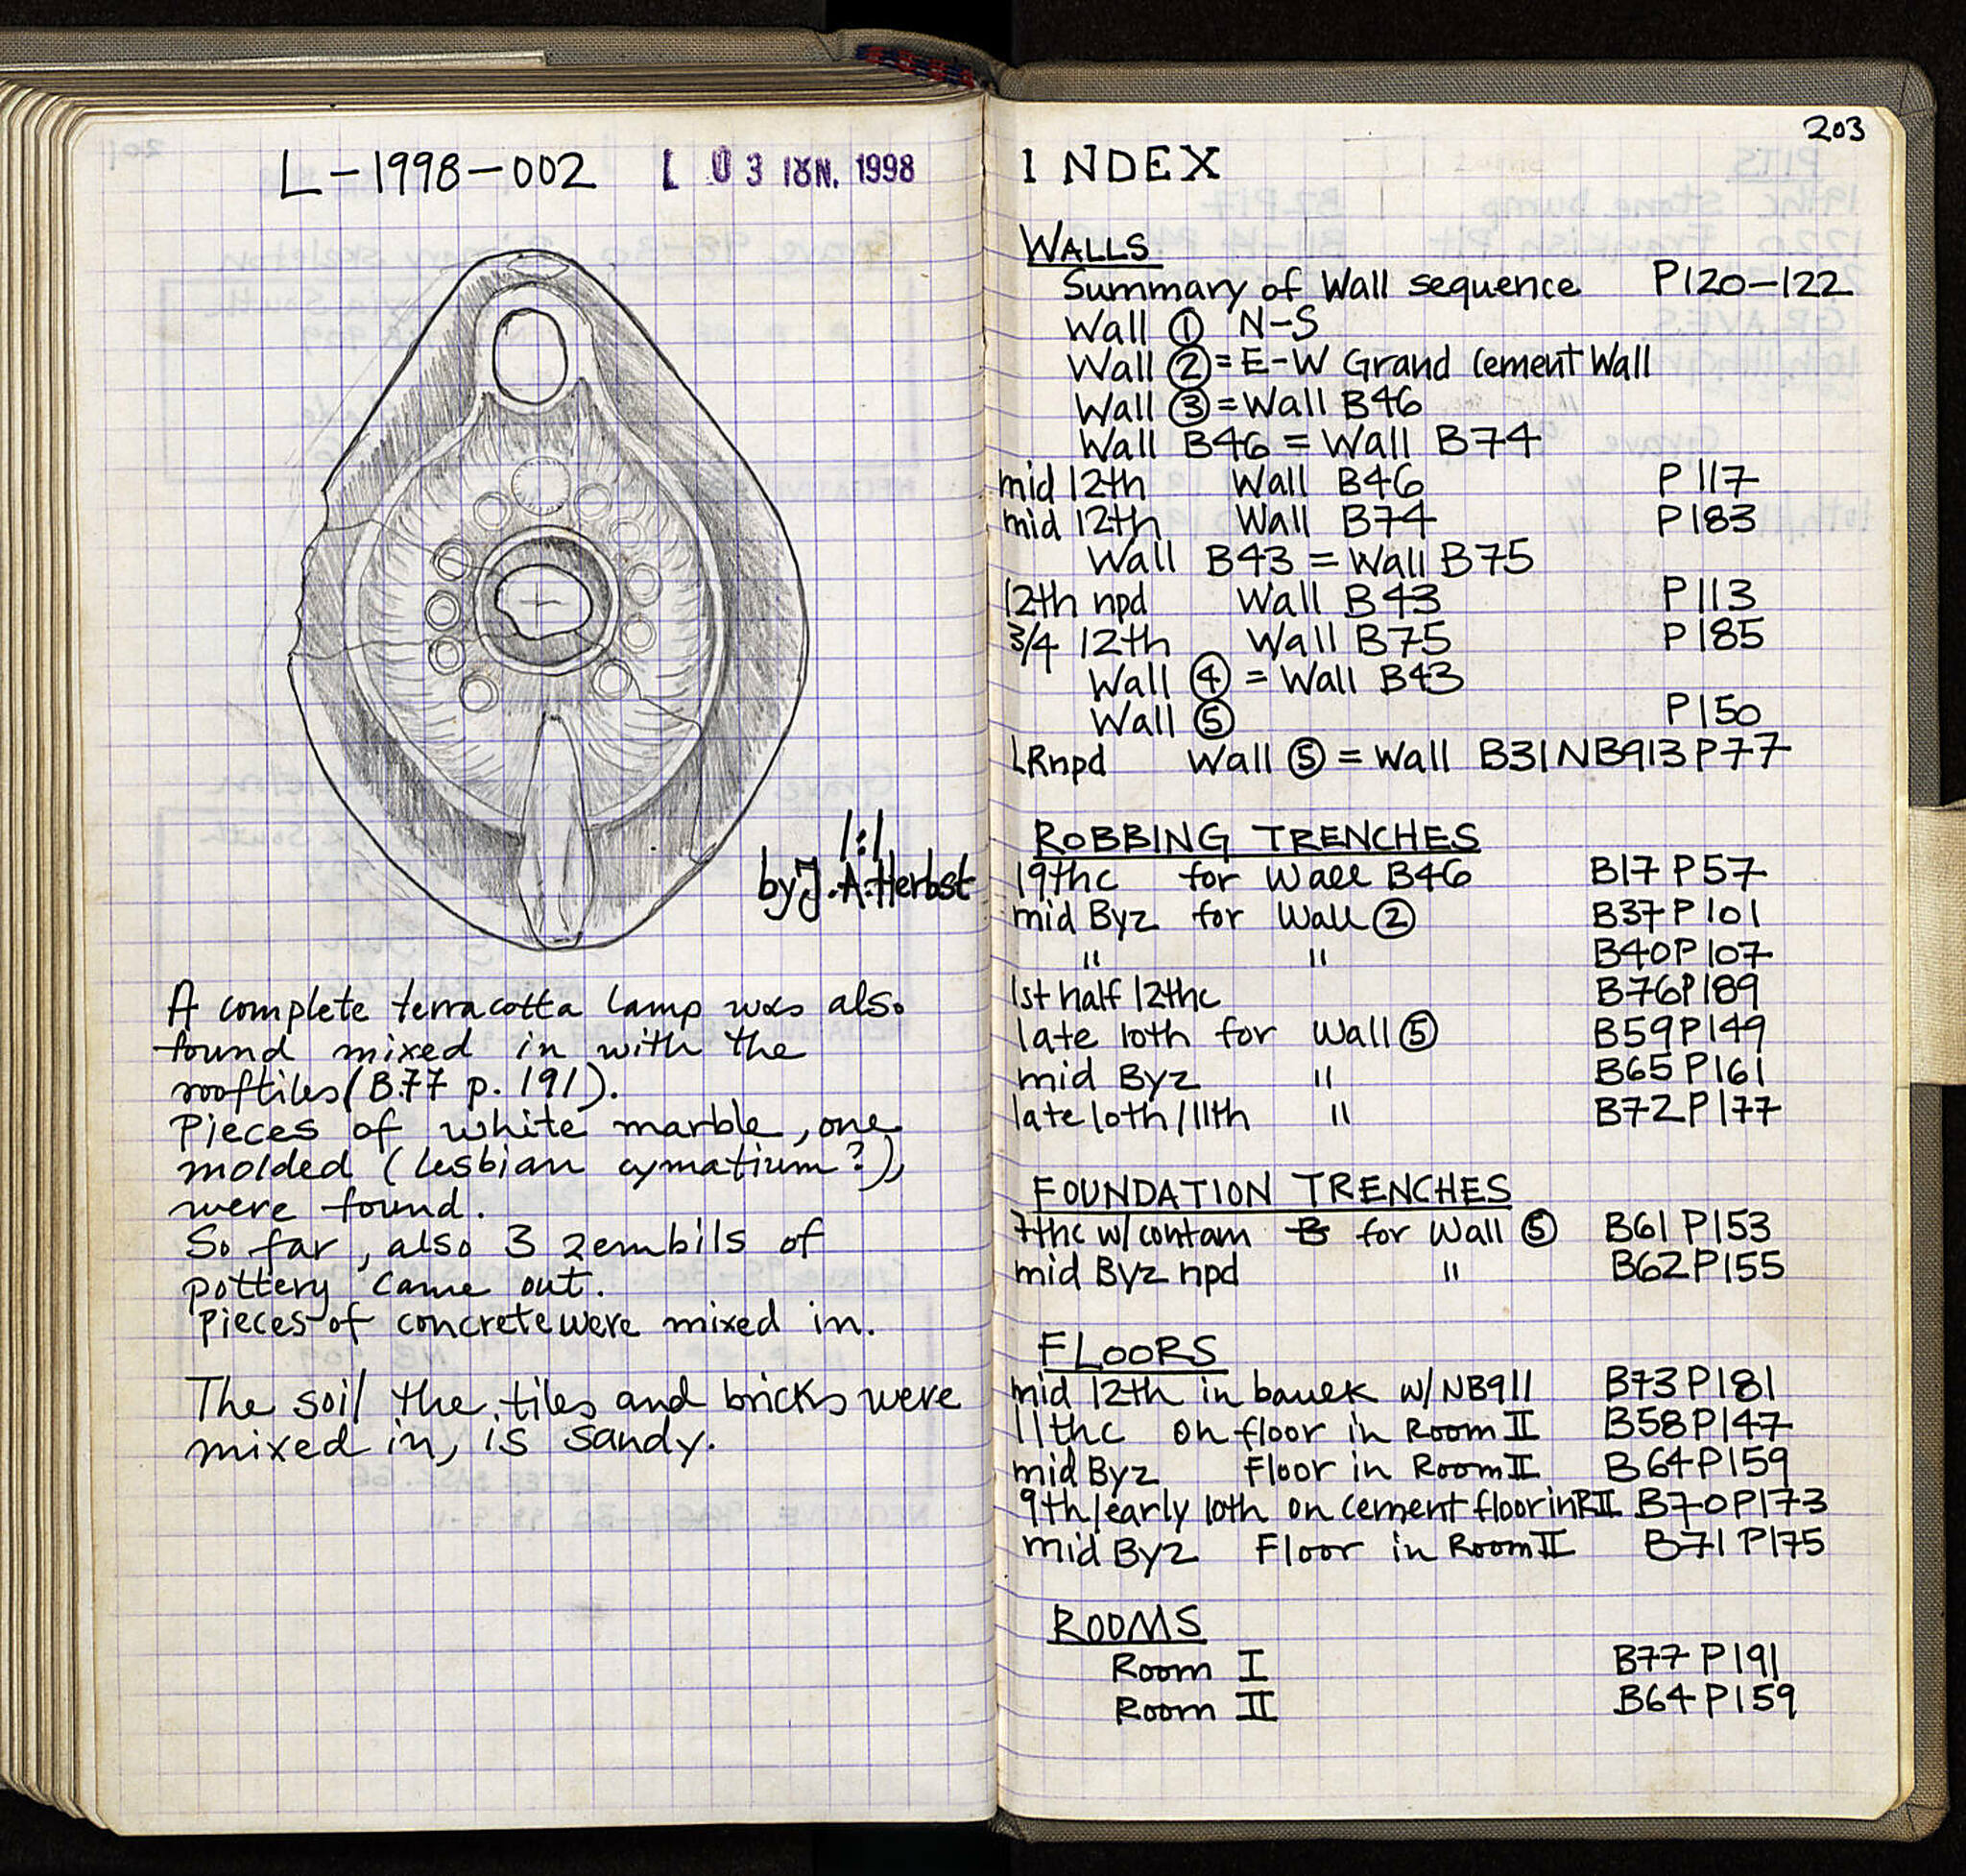 L-1998-002 [ 03 ΙΟΥΝ. 1998
1:1
by J.A.Herbst
A complete terracotta lamp was also
found mixed in with the
rooftiles (B.77 p. 191).
Pieces of white marble, one
molded (lesbian cymatium?),
were found.
So far, also 3 zembils of
pottery came out.
Pieces of concrete were mixed in.
The soil the tiles and bricks were
mixed in, is sandy.
203
INDEX
WALLS
Summary of Wall sequence P120-122
Wall ① N-S
Wall ② = E-W Grand Cement Wall
Wall ③ = Wall B46
Wall B46 = Wall B74
mid 12th Wall B46 P117
mid 12th Wall B74 P183
Wall B43 = Wall B75
12th npd Wall B43 P113
3/4 12th Wall B75 P185
Wall ④ = Wall B43
Wall ⑤ P150
LRnpd Wall ⑤ = Wall B31NB913P77
ROBBING TRENCHES
19thc for Wall B46 B17 P57
mid Byz for Wall ② B37P101
" " B40P107
1st half 12thc B76P189
late 10th for Wall ⑤ B59P149
mid Byz " B65P161
late 10th/11th " B72P177
FOUNDATION TRENCHES
7thc w/ contam B for Wall ⑤ B61 P153
mid Byz npd " B62P155
FLOORS
mid 12th in baulk w/NB911 B73P181
11thc on floor in Room II B58P147
mid Byz Floor in Room II B64P159
9th/early 10th on cement floor in RII B70P173
mid Byz Floor in Room II B71 P175
ROOMS
Room I B77 P191
Room II B64 P159